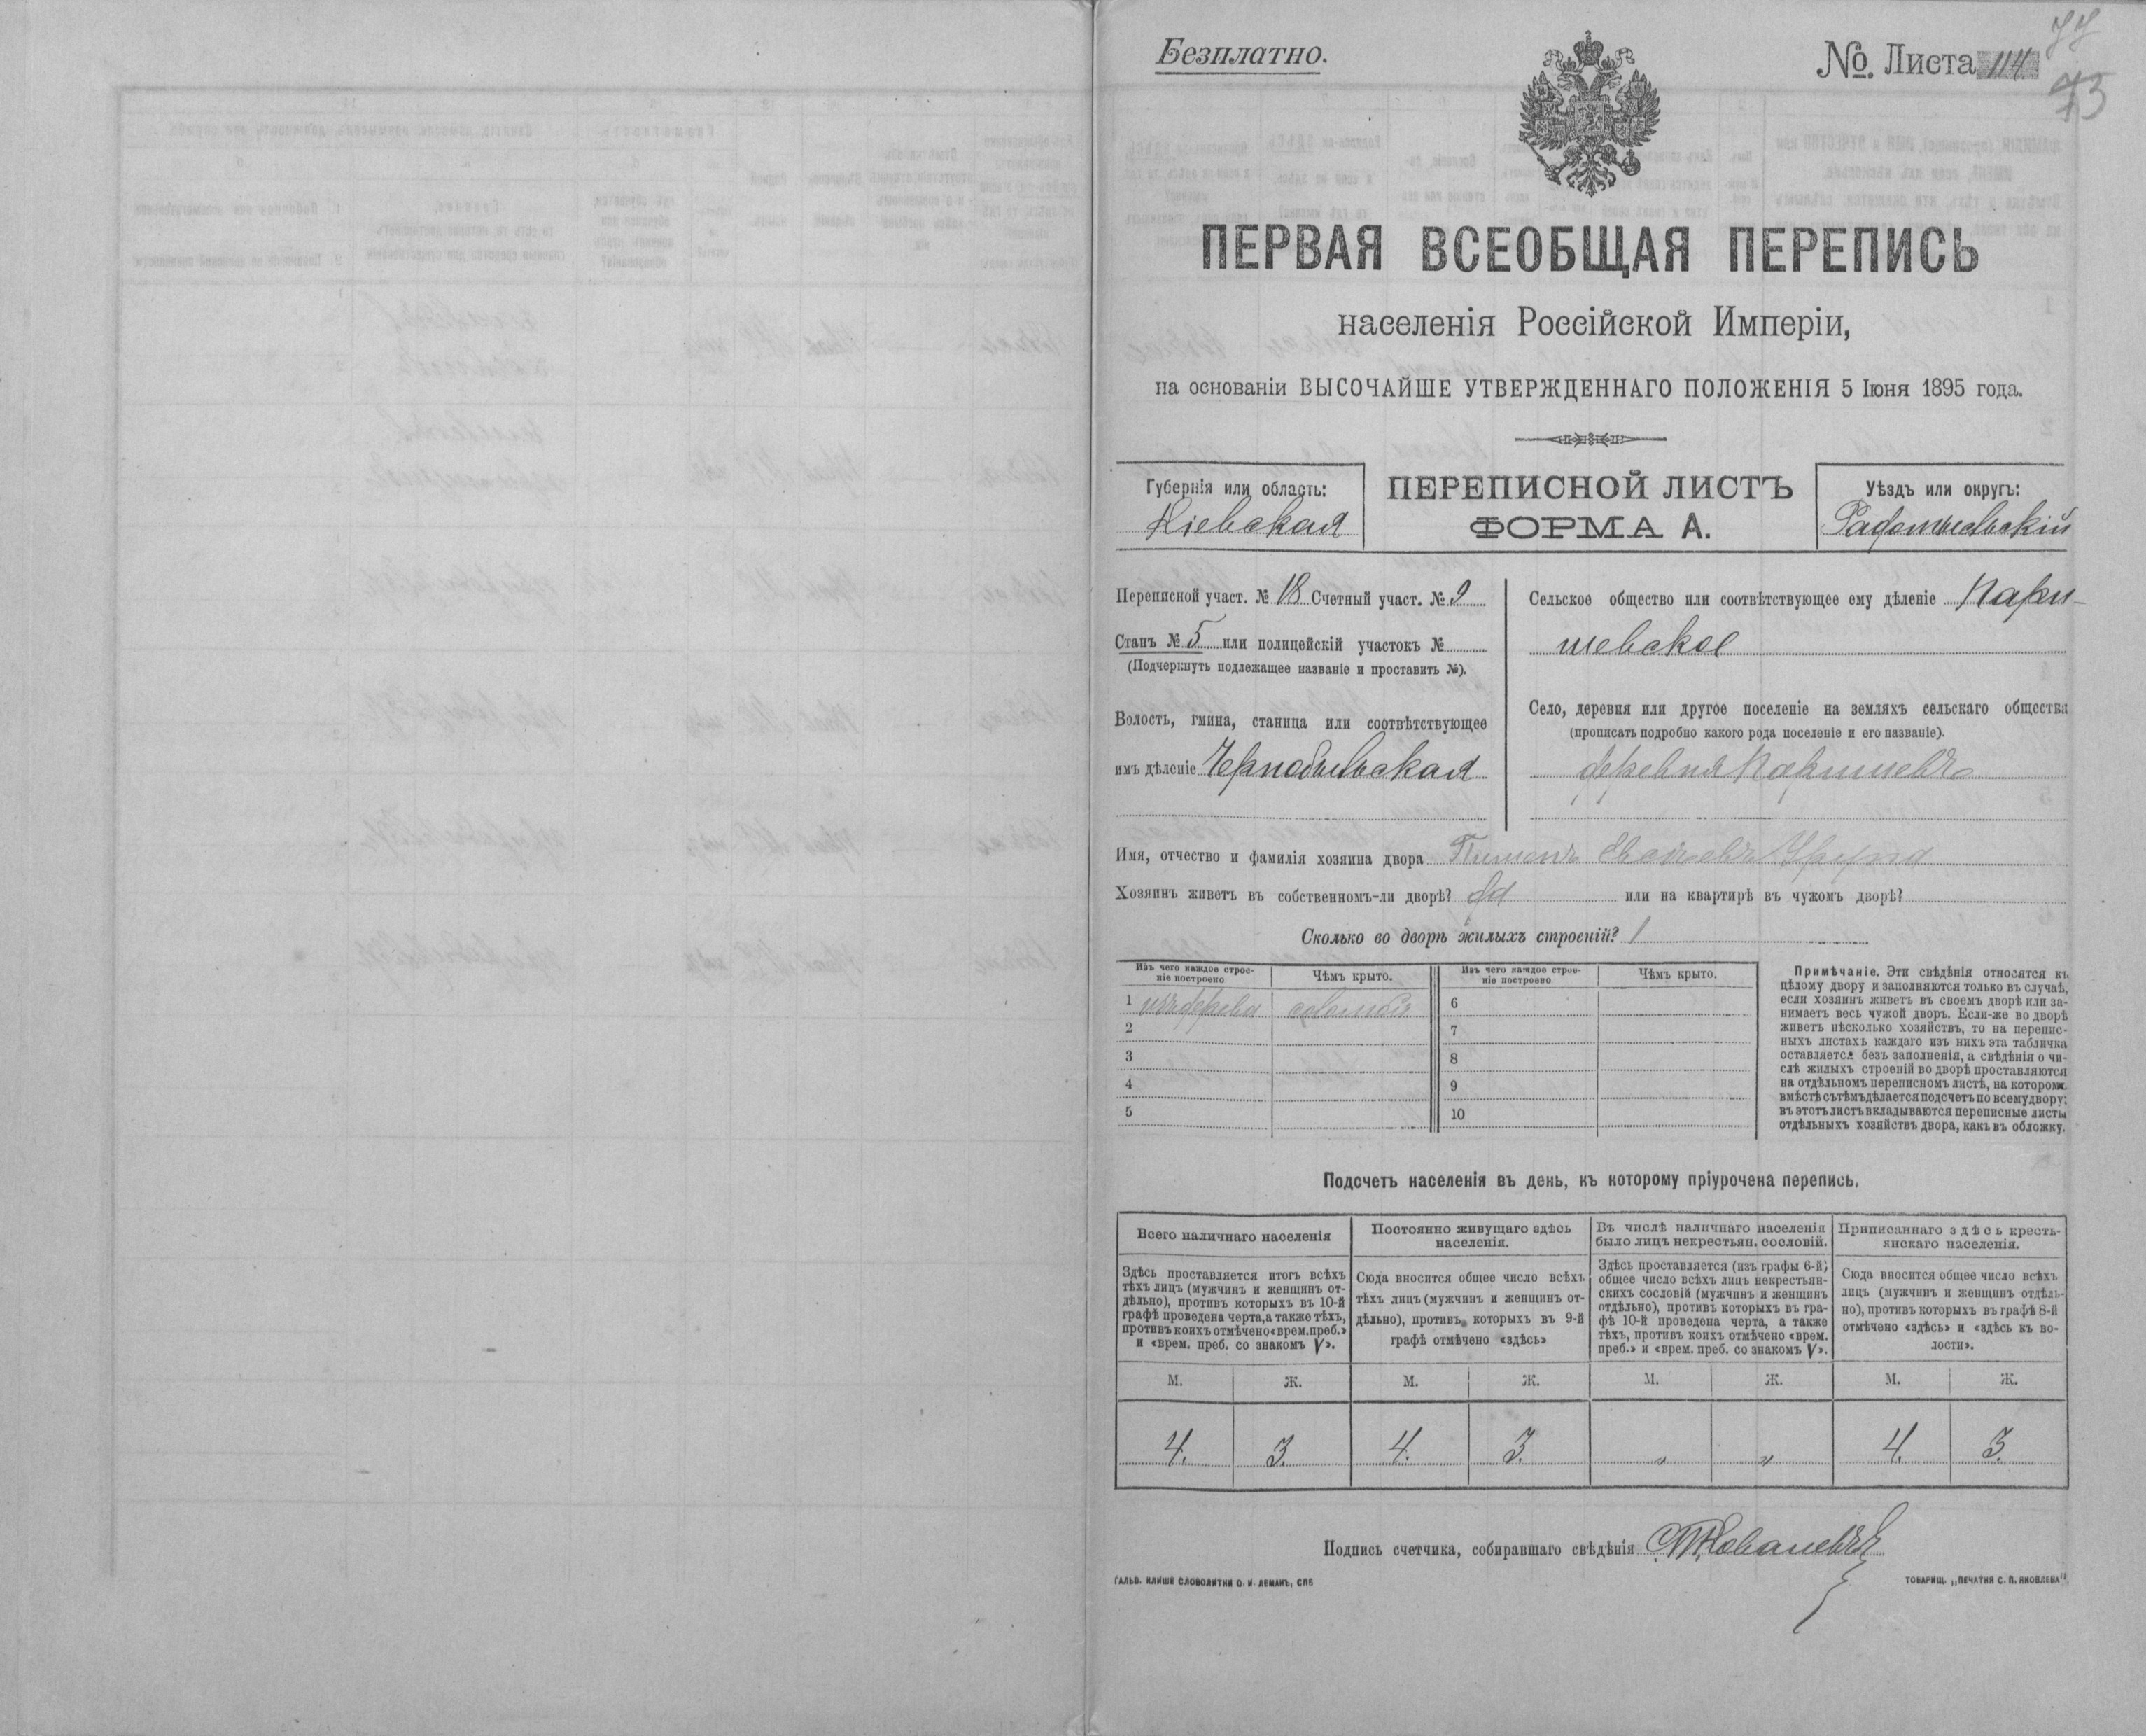 Безплатно.
№ Листа 114
77
73
ПЕРВАЯ ВСЕОБЩАЯ ПЕРЕПИСЬ
населенія Россійской Имперіи,
на основаніи ВЫСОЧАЙШЕ УТВЕРЖДЕННАГО ПОЛОЖЕНІЯ 5 Іюня 1895 года.
Губернія или область:
Кіевская
ПЕРЕПИСНОЙ ЛИСТЪ
ФОРМА А.
Уѣздъ или округъ:
Радомысльскій
Переписной участ. № 18 Счетный участ. № 9
Станъ № 5 или полицейскій участокъ №
(Подчеркнуть подлежащее названіе и проставить №).
Волость, гмина, станица или соотвѣтствующее
имъ дѣленіе Чернобыльская
Сельское общество или соотвѣтствующее ему дѣленіе Пари-
шевское
Село, деревня или другое поселеніе на земляхъ сельскаго общества
(прописать подробно какого рода поселеніе и его названіе).
деревня Паришевъ
Имя, отчество и фамилія хозяина двора Пименъ
Хозяинъ живетъ въ собственномъ-ли дворѣ? Да или на квартирѣ въ чужомъ дворѣ?
Сколько во дворѣ жилыхъ строеній? 1
Изъ чего каждое строе-
ніе построено
Чѣмъ крыто.
Изъ чего каждое строе-
ніе построено
Чѣмъ крыто.
1 изъ дерева соломой
2
3
4
5
6
7
8
9
10
Примѣчаніе. Эти свѣдѣнія относятся къ
цѣлому двору и заполняются только въ случаѣ,
если хозяинъ живетъ въ своемъ дворѣ или за-
нимаетъ весь чужой дворъ. Если-же во дворѣ
живетъ нѣсколько хозяйствъ, то на перепис-
ныхъ листахъ каждаго изъ нихъ эта табличка
оставляется безъ заполненія, а свѣдѣнія о чи-
слѣ жилыхъ строеній во дворѣ проставляются
на отдѣльномъ переписномъ листѣ, на которомъ
вмѣстѣ съ тѣмъ дѣлается подсчетъ по всему двору;
въ этотъ листъ вкладываются переписные листы
отдѣльныхъ хозяйствъ двора, какъ въ обложку.
Подсчетъ населенія въ день, къ которому пріурочена перепись.
Всего наличнаго населенія
Здѣсь проставляется итогъ всѣхъ
тѣхъ лицъ (мужчинъ и женщинъ от-
дѣльно), противъ которыхъ въ 10-й
графѣ проведена черта, а также тѣхъ,
противъ коихъ отмѣчено «врем. преб.»
и «врем. преб. со знакомъ V».
Постоянно живущаго здѣсь
населенія.
Сюда вносится общее число всѣхъ
тѣхъ лицъ (мужчинъ и женщинъ от-
дѣльно), противъ которыхъ въ 9-й
графѣ отмѣчено «здѣсь»
Въ числѣ наличнаго населенія
было лицъ некрестьян. сословій.
Здѣсь проставляется (изъ графы 6-й)
общее число всѣхъ лицъ некрестьян-
скихъ сословій (мужчинъ и женщинъ
отдѣльно), противъ которыхъ въ гра-
фѣ 10-й проведена черта, а также
тѣхъ, противъ коихъ отмѣчено «врем.
преб.» и «врем. преб. со знакомъ V».
Приписаннаго здѣсь кресть-
янскаго населенія.
Сюда вносится общее число всѣхъ
лицъ (мужчинъ и женщинъ отдѣль-
но), противъ которыхъ въ графѣ 8-й
отмѣчено «здѣсь» и «здѣсь къ во-
лости».
М. Ж. М. Ж. М. Ж. М. Ж.
4. 3. 4. 3. „ „ 4. 3.
Подпись счетчика, собиравшаго свѣдѣнія
ГАЛЬВ. КЛИШЕ СЛОВОЛИТНИ О. И. ЛЕМАНЪ, СПБ
ТОВАРИЩ. „ПЕЧАТНЯ С. П. ЯКОВЛЕВА".